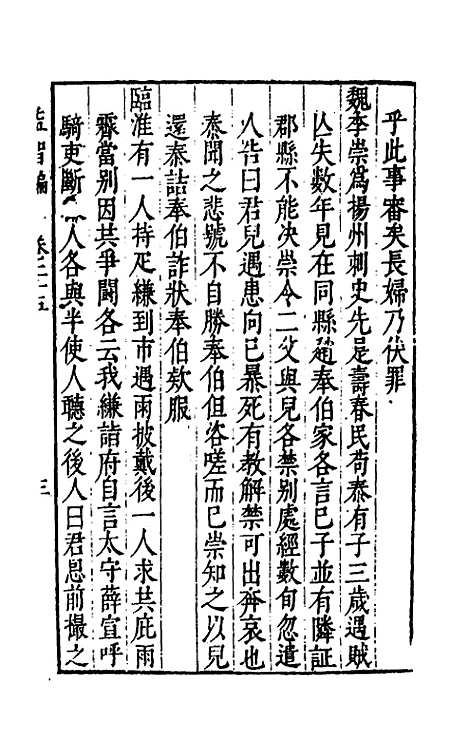 乎此事審矣長婦乃伏罪
魏李崇爲揚州刺史先是壽春民苟泰有子三歲遇賊
亾失數年見在同縣趙奉伯家各言已子並有隣証
郡縣不能决崇令二父與兒各禁别處經數旬忽遣
人告曰君兒遇患向已暴死有教解禁可出奔哀也
泰聞之悲號不自勝奉伯但咨嗟而已崇知之以兒
還泰詰奉伯詐狀奉伯欵服
臨淮有一人持疋縑到市遇雨披戴後一人求共庇雨
霽當别因共爭鬪各云我縑詣府自言太守薛宣呼
騎吏斷 人各與半使人聽之後人曰君恩前撮之
益智編 卷二十五 三